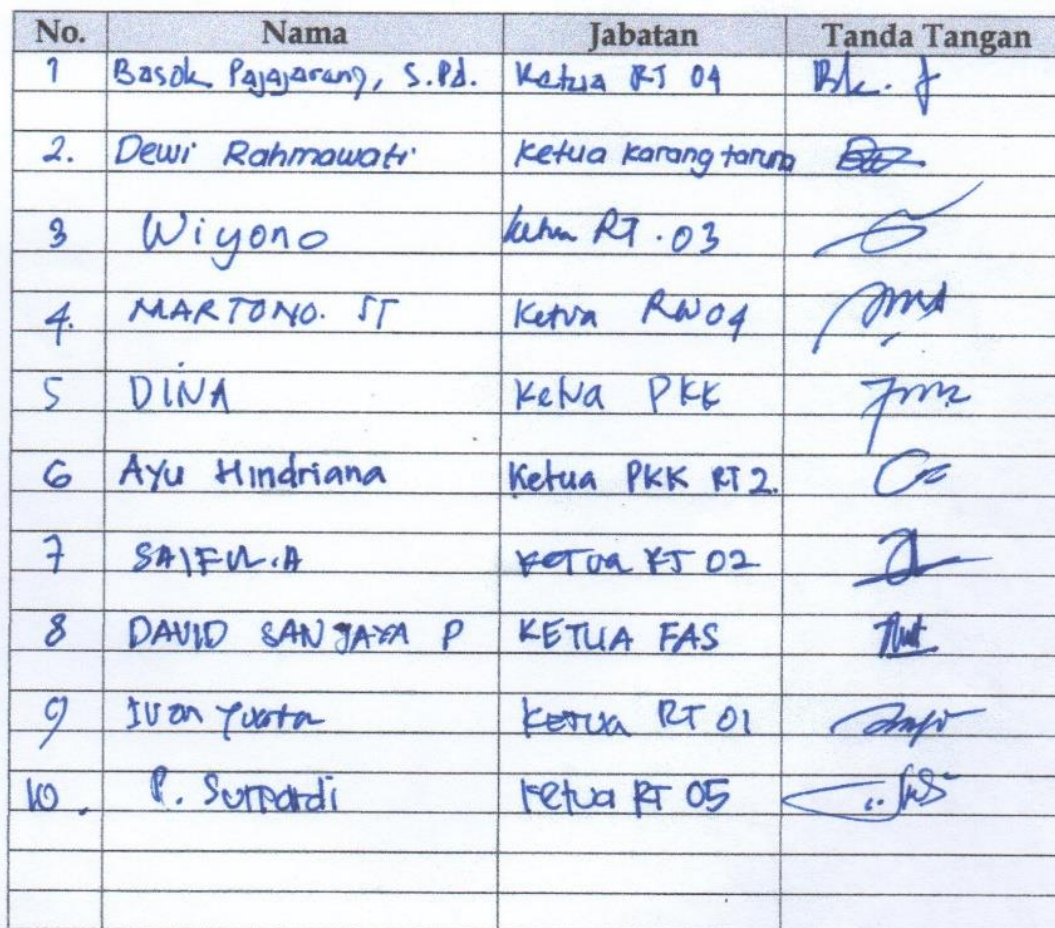 No. Nama Jabatan Tanda Tangan
1 Basok Pajajarang, S.Pd. Ketua RT 04
2. Dewi Rahmawati Ketua Karang taruna
3 Wiyono Ketua RT. 03
4. MARTONO. ST Ketua RW 04
5 DINA Ketua PKK
6 Ayu Hindriana Ketua PKK RT 2.
7 SAIFUL.A KETUA RT 02
8 DAVID SANJAYA P KETUA FAS
9 Ivan Ketua RT 01
10. P. Ketua RT 05